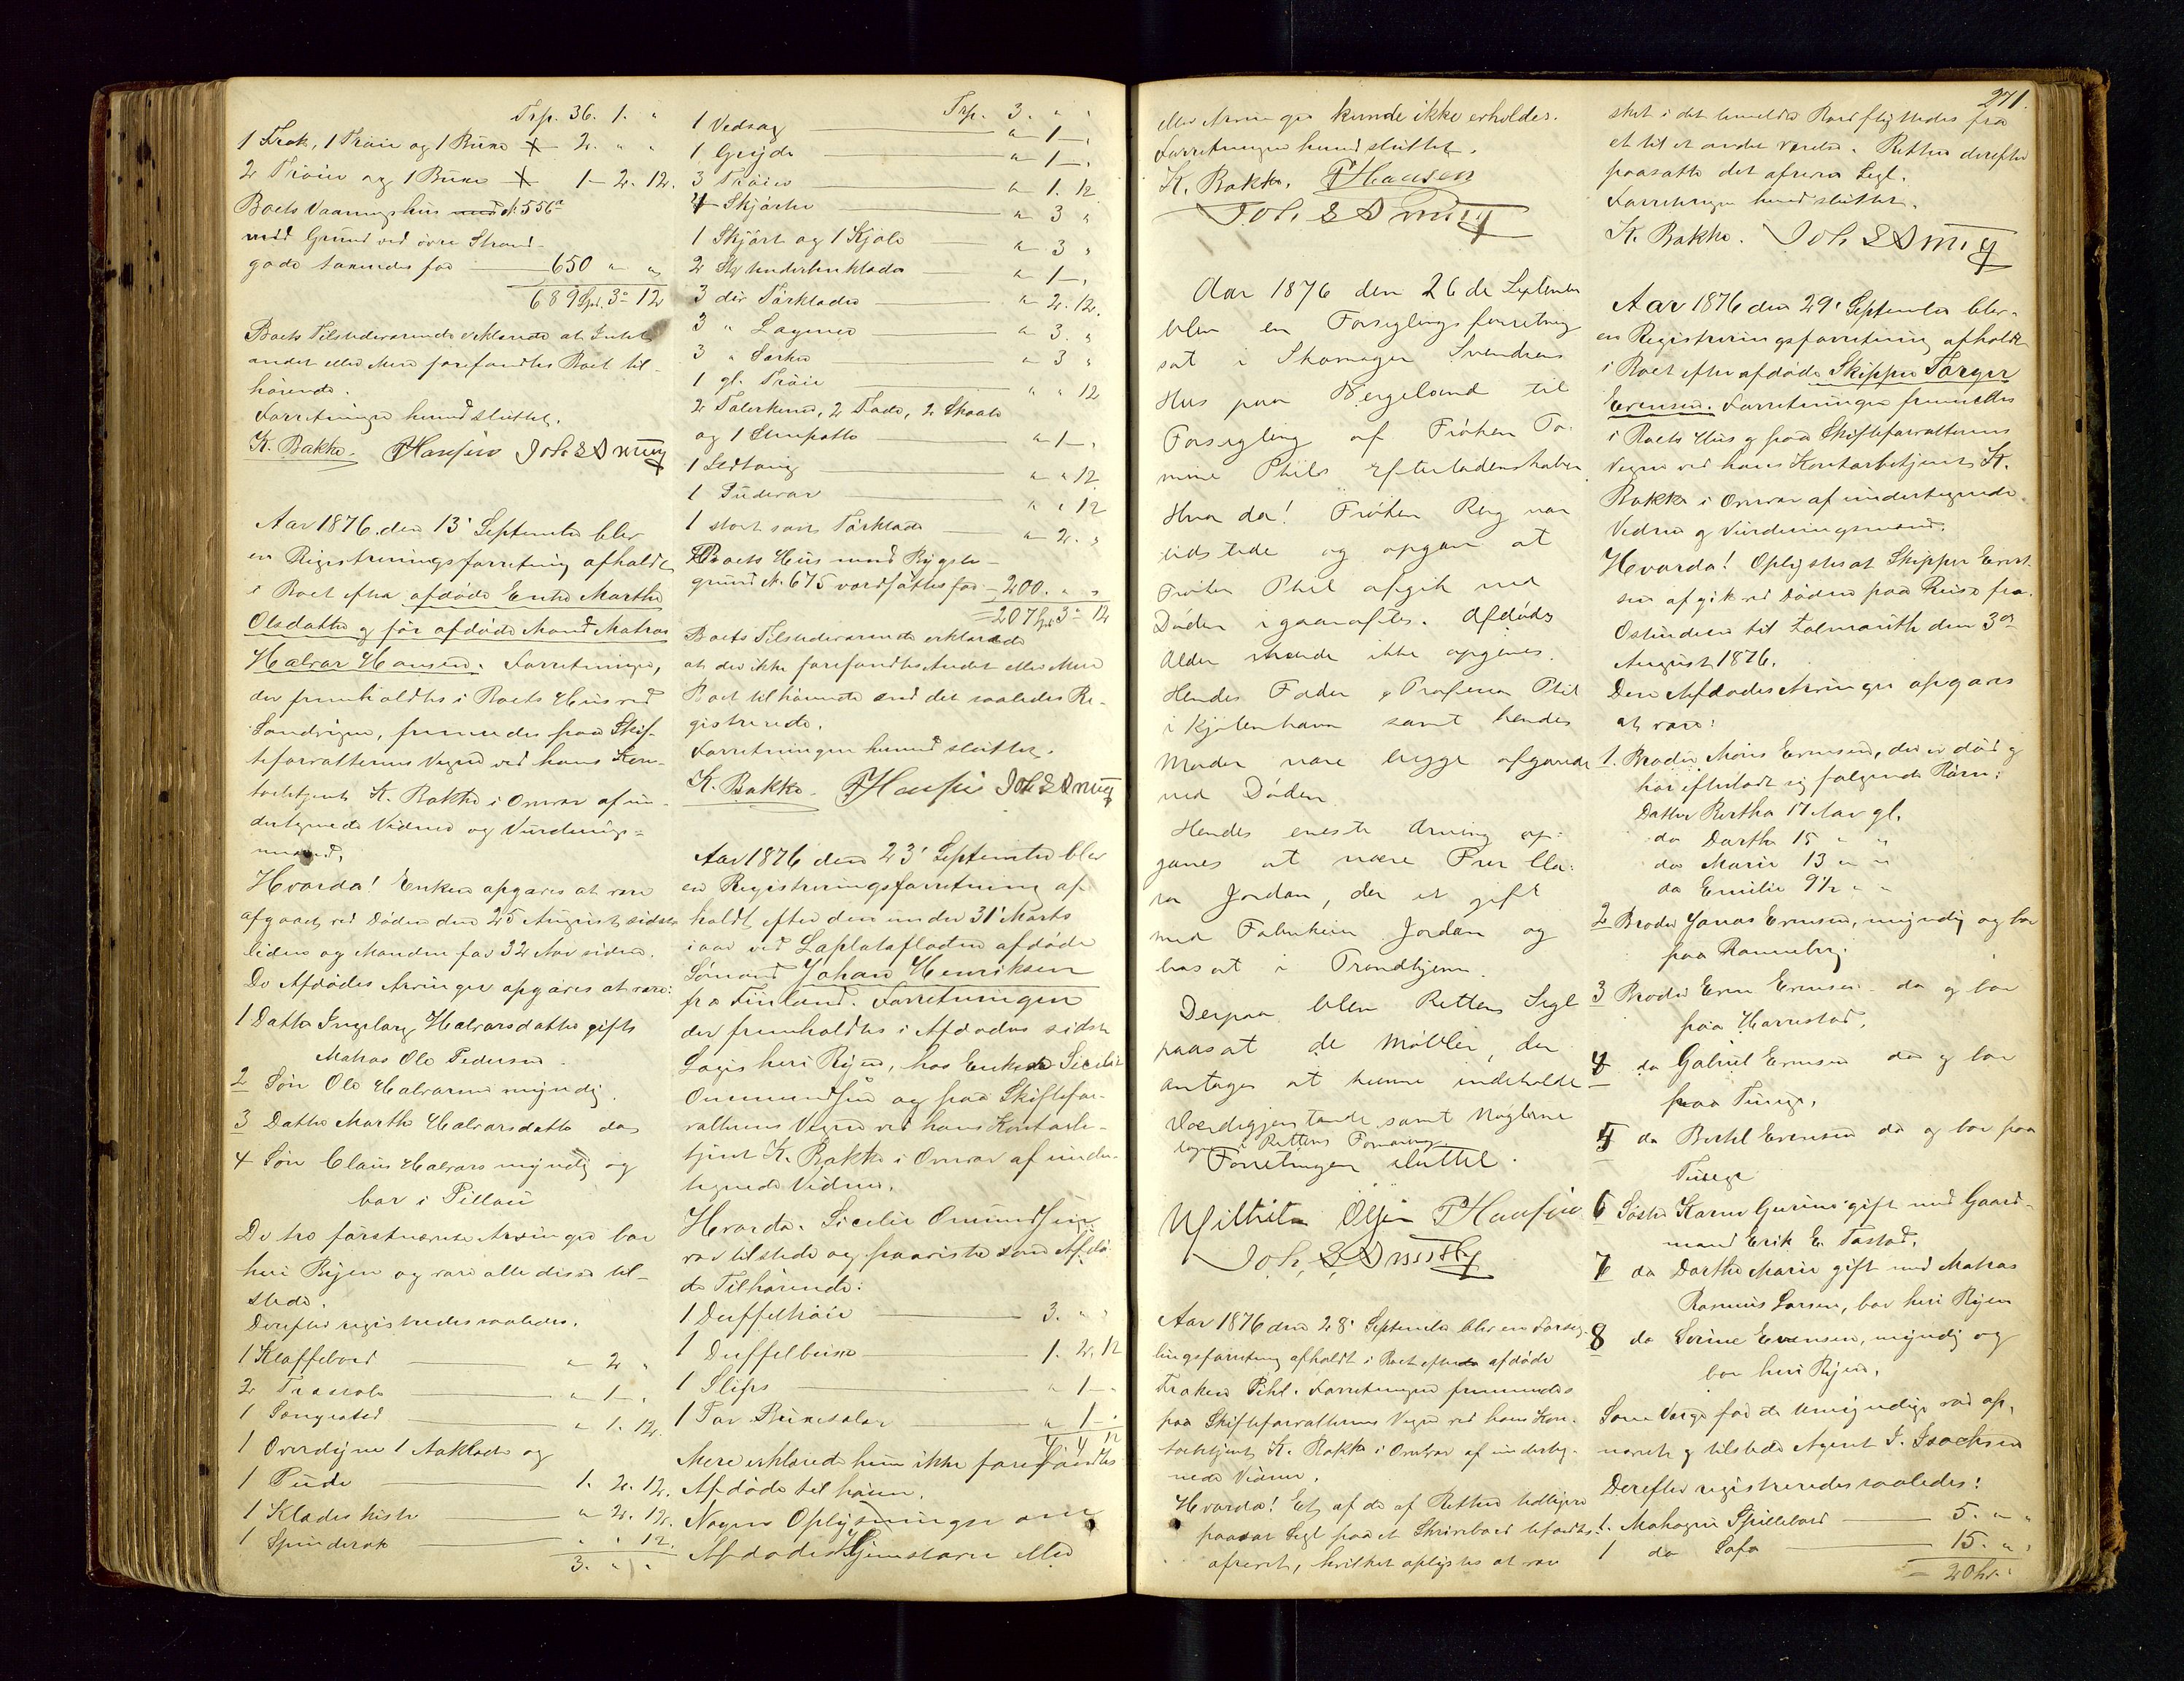 Trp. 36. 1. "
1 Frak, 1 Trøie og 1 Buxe — 2. " "
2 Trøier og 1 Buxe — 1 – 2. 12.
Boets Vaaningshus med No 556a
med Grund ved øvre Strand-
gade taxeredes for — 650 " "
689 Spd. 3 " 12
Boets Tilstedeværende erklærede at Intet
andet eller Mere forefandtes Boet til-
hørende.
Forretningen hermed sluttet.
K. Bakke. PHansen Joh S Smug
Aar 1876 den 13' September blev
en Registreringsforretning afholdt
i Boet efter afdøde Enke Marthe
Olsdatter og før afdøde Mand Matros
Halvor Hansen. Forretningen,
der fremholdtes i Boets Hus ved
Sandvigen, fremmedes paa Skif-
teforvalterens Vegne ved hans Kon-
torbetjent K. Bakke i Overvær af un-
dertegnede Vidner og Vurderings-
mænd.
Hvorda! Enken opgaves at være
afgaaet ved Døden den 25 August sidst-
leden og Manden for 32 Aar siden.
De Afdødes Arvinger opgaves at være:
1 Datter Ingeborg Halvorsdatter gift
Matros Ole Pedersen.
2 Søn Ole Halvorsen myndig.
3 Datter Marthe Halvorsdatter do
4 Søn Claus Halvors myndig og
bor i Pillau
De tre førstnævnte Arvinger bor
her i Byen og vare alle disse til-
stede.
Derefter registreredes saaledes.
1 Klaffebord — " 2 "
2 Træstole — " 1 – "
1 Sengested — " 1. 12.
1 Overdyne 1 Aaklæde og
1 Pude — 1. 2. 12.
1 Klædeskiste — " 2. 12.
1 Spinderok — " " 12.
3. " "
Trp. 3. " "
1 Vedsag — " 1 – "
1 Gryde — " 1 – "
3 Trøier — " 1. 12
4 Skjørter — " 3 "
1 Skjørt og 1 Kjole — " 3 "
2 Underklæder — " 1 – "
3 dir Tørklæder — " 2. 12.
3 " Lagner — " 3. "
3 " Særke — " 3 "
1 gl. Trøie — " " 12
2 Talerkener, 2 Fade, 2 Skaale
og 1 Thepotte — " 1 – "
1 Ildtang — " " 12
1 Pudevar — " " 12
1 stort sort Tørklæde — " 2. "
Boets Hus med Bygsle-
grund No 675 værdsattes for — 200. " "
207 Spd 3 " 12
Boets Tilstedeværende erklærede
at der ikke forefandtes Andet eller Mere
Boet tilhørende end det saaledes Re-
gistrerede.
Forretningen hermed sluttet.
K. Bakke. PHansen Joh S Smug
Aar 1876 den 23' September blev
en Registreringsforretning af-
holdt efter den under 31' Marts
iaar ved Laplatafloden afdøde
Sømand Johan Henriksen
fra Finland. Forretningen
der fremholdtes i Afdødes sidste
Logis her i Byen, hos Enken Sicilie
Ommundsen og paa Skiftefor-
valterens Vegne ved hans Kontorbe-
tjent K. Bakke i Overvær af under-
tegnede Vidner.
Hvorda. Sicilie Omundsen
var tilstede og paaviste som Afdø-
de Tilhørende:
1 Duffeltrøie — 3. " "
1 Duffelbuxe — 1. 2. 12
1 Slips — " 1 – "
1 Par Buxeseler — " 1 – "
4 4 12
Mere erklærede hun ikke forefandtes
Afdøde tilhørende.
Nogen Oplysninger om
Afdødes Hjemstavn eller
271.
eller Arvinger kunde ikke erholdes.
Forretningen hermed sluttet.
K. Bakke. PHansen
Joh S Smug
Aar 1876 den 26de September
blev en Forseglingsforretning
sat i Skomager Svendsens
Hus paa Bergeland til
Forsegling af Frøken To-
mine Phils Efterladenskaber
Hvor da! Frøken Berg var
tilstede og opgav at
Frøken Phil afgik ved
Døden igaaraftes. Afdødes
Alder kunde ikke opgives.
Hendes Fader, Professor Phil
i Kjøbenhavn samt hendes
Moder vare begge afgaaede
ved Døden
Hendes eneste Arving op-
gaves at være Fru Cla-
ra Jordan, der er gift
med Jordan og
bosat i Trondhjem.
Derpaa blev Rettens Segl
paasat de Møbler, der
antages at kunne indeholde
Værdigjenstande samt Nøglerne
tagne i Rettens Forvaring.
Forretningen sluttet.
Wilhelm Olsen PHansen
Joh. S Smug
Aar 1876 den 28' September blev en Forseg-
lingsforretning afholdt i Boet efter afdøde
Frøken Pihl. Forretningen fremmedes
paa Skifteforvalterens Vegne ved hans Kon-
torbetjent K. Bakke i Overvær af underteg-
nede Vidner.
Hvorda! Et af de af Retten tidligere
paasat Segl paa et Skrivebord befandtes
afrevet, hvilket oplystes at var
sket i det bemeldte Bord flyttedes fra
et til et andet Værelse. Retten derefter
paasatte det afrevne Segl.
Forretningen hermed sluttet.
K. Bakke. Joh S Smug
Aar 1876 den 29' September blev
en Registreringsforretning afholdt
i Boet efter afdøde Skipper Torger
Evensen. Forretningen fremmedes
i Boets Hus og paa Skifteforvalterens
Vegne ved hans Kontorbetjent K.
Bakke i Overvær af undertegnede
Vidner og Vurderingsmænd.
Hvorda! Oplystes at Skipper Even-
sen afgik ved Døden paa Reise fra
Ostindien til Falmouth den 3die
August 1876.
Den Afdødes Arvinger opgaves
at være:
1. Broder Mons Evensen, der er død og
har efterladt sig følgende Børn:
Datter Bertha 17 Aar gl.
do Dorthe 15 " "
do Marie 13 " "
do Emilie 9½ " "
2 Broder Jonas Evensen, myndig og bor
paa Ranneberg
3 Broder Even Evensen do og bor
paa Harrestad.
4 do Gabriel Evensen do og bor
paa Tunge.
5 do Berthel Evensen do og bor paa
Tunge
6 Søster Karen Gurine gift med Gaard-
mand Erik E. Tastad.
7 do Dorthe Marie gift med Matros
Rasmus Larsen, bor her i Byen
8 do Serine Evensen, myndig og
bor her i Byen.
Som Værge for de Umyndige var op-
nævnt og tilstede Agent I. Isachsen
Derefter registreredes saaledes:
1. Mahogni Spillebord — 5. " "
1 do Sofa — 15. " "
20 kr. "